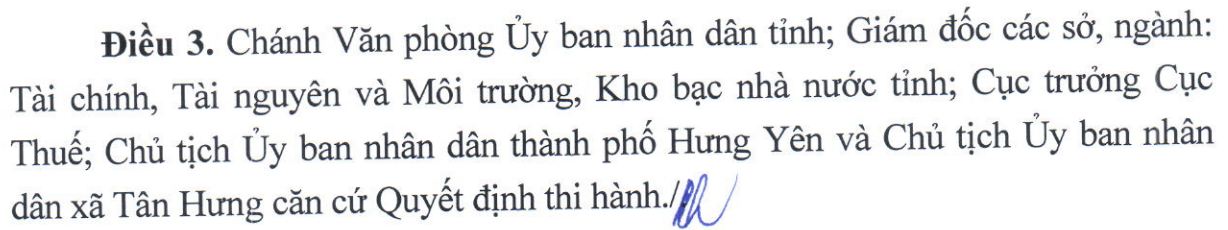 Điều 3. Chánh Văn phòng Ủy ban nhân dân tỉnh; Giám đốc các sở, ngành:
Tài chính, Tài nguyên và Môi trường, Kho bạc nhà nước tỉnh; Cục trưởng Cục
Thuế; Chủ tịch Ủy ban nhân dân thành phố Hưng Yên và Chủ tịch Ủy ban nhân
dân xã Tân Hưng căn cứ Quyết định thi hành./